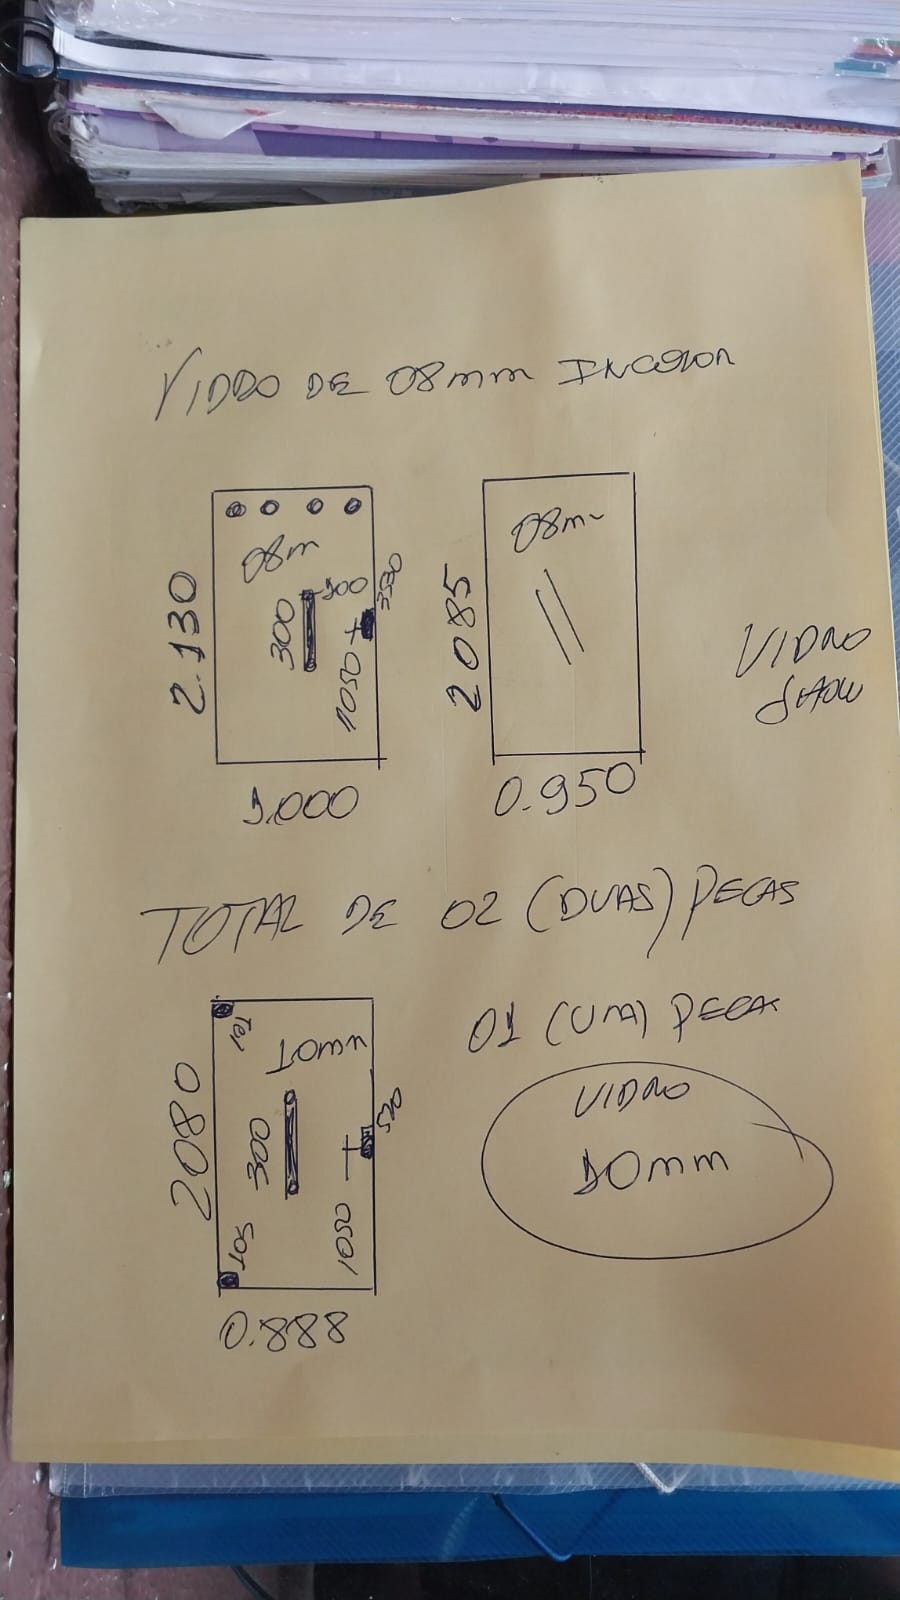 VIDRO DE 08mm INCOLOR
08m
2.130
300
100
3530
1050
1.000
08m
2085
0.950
VIDRO
SHOW
TOTAL DE 02 (DUAS) PECAS
2080
10mm
300
520
1050
0.888
01 (UMA) PECA
VIDRO
10mm